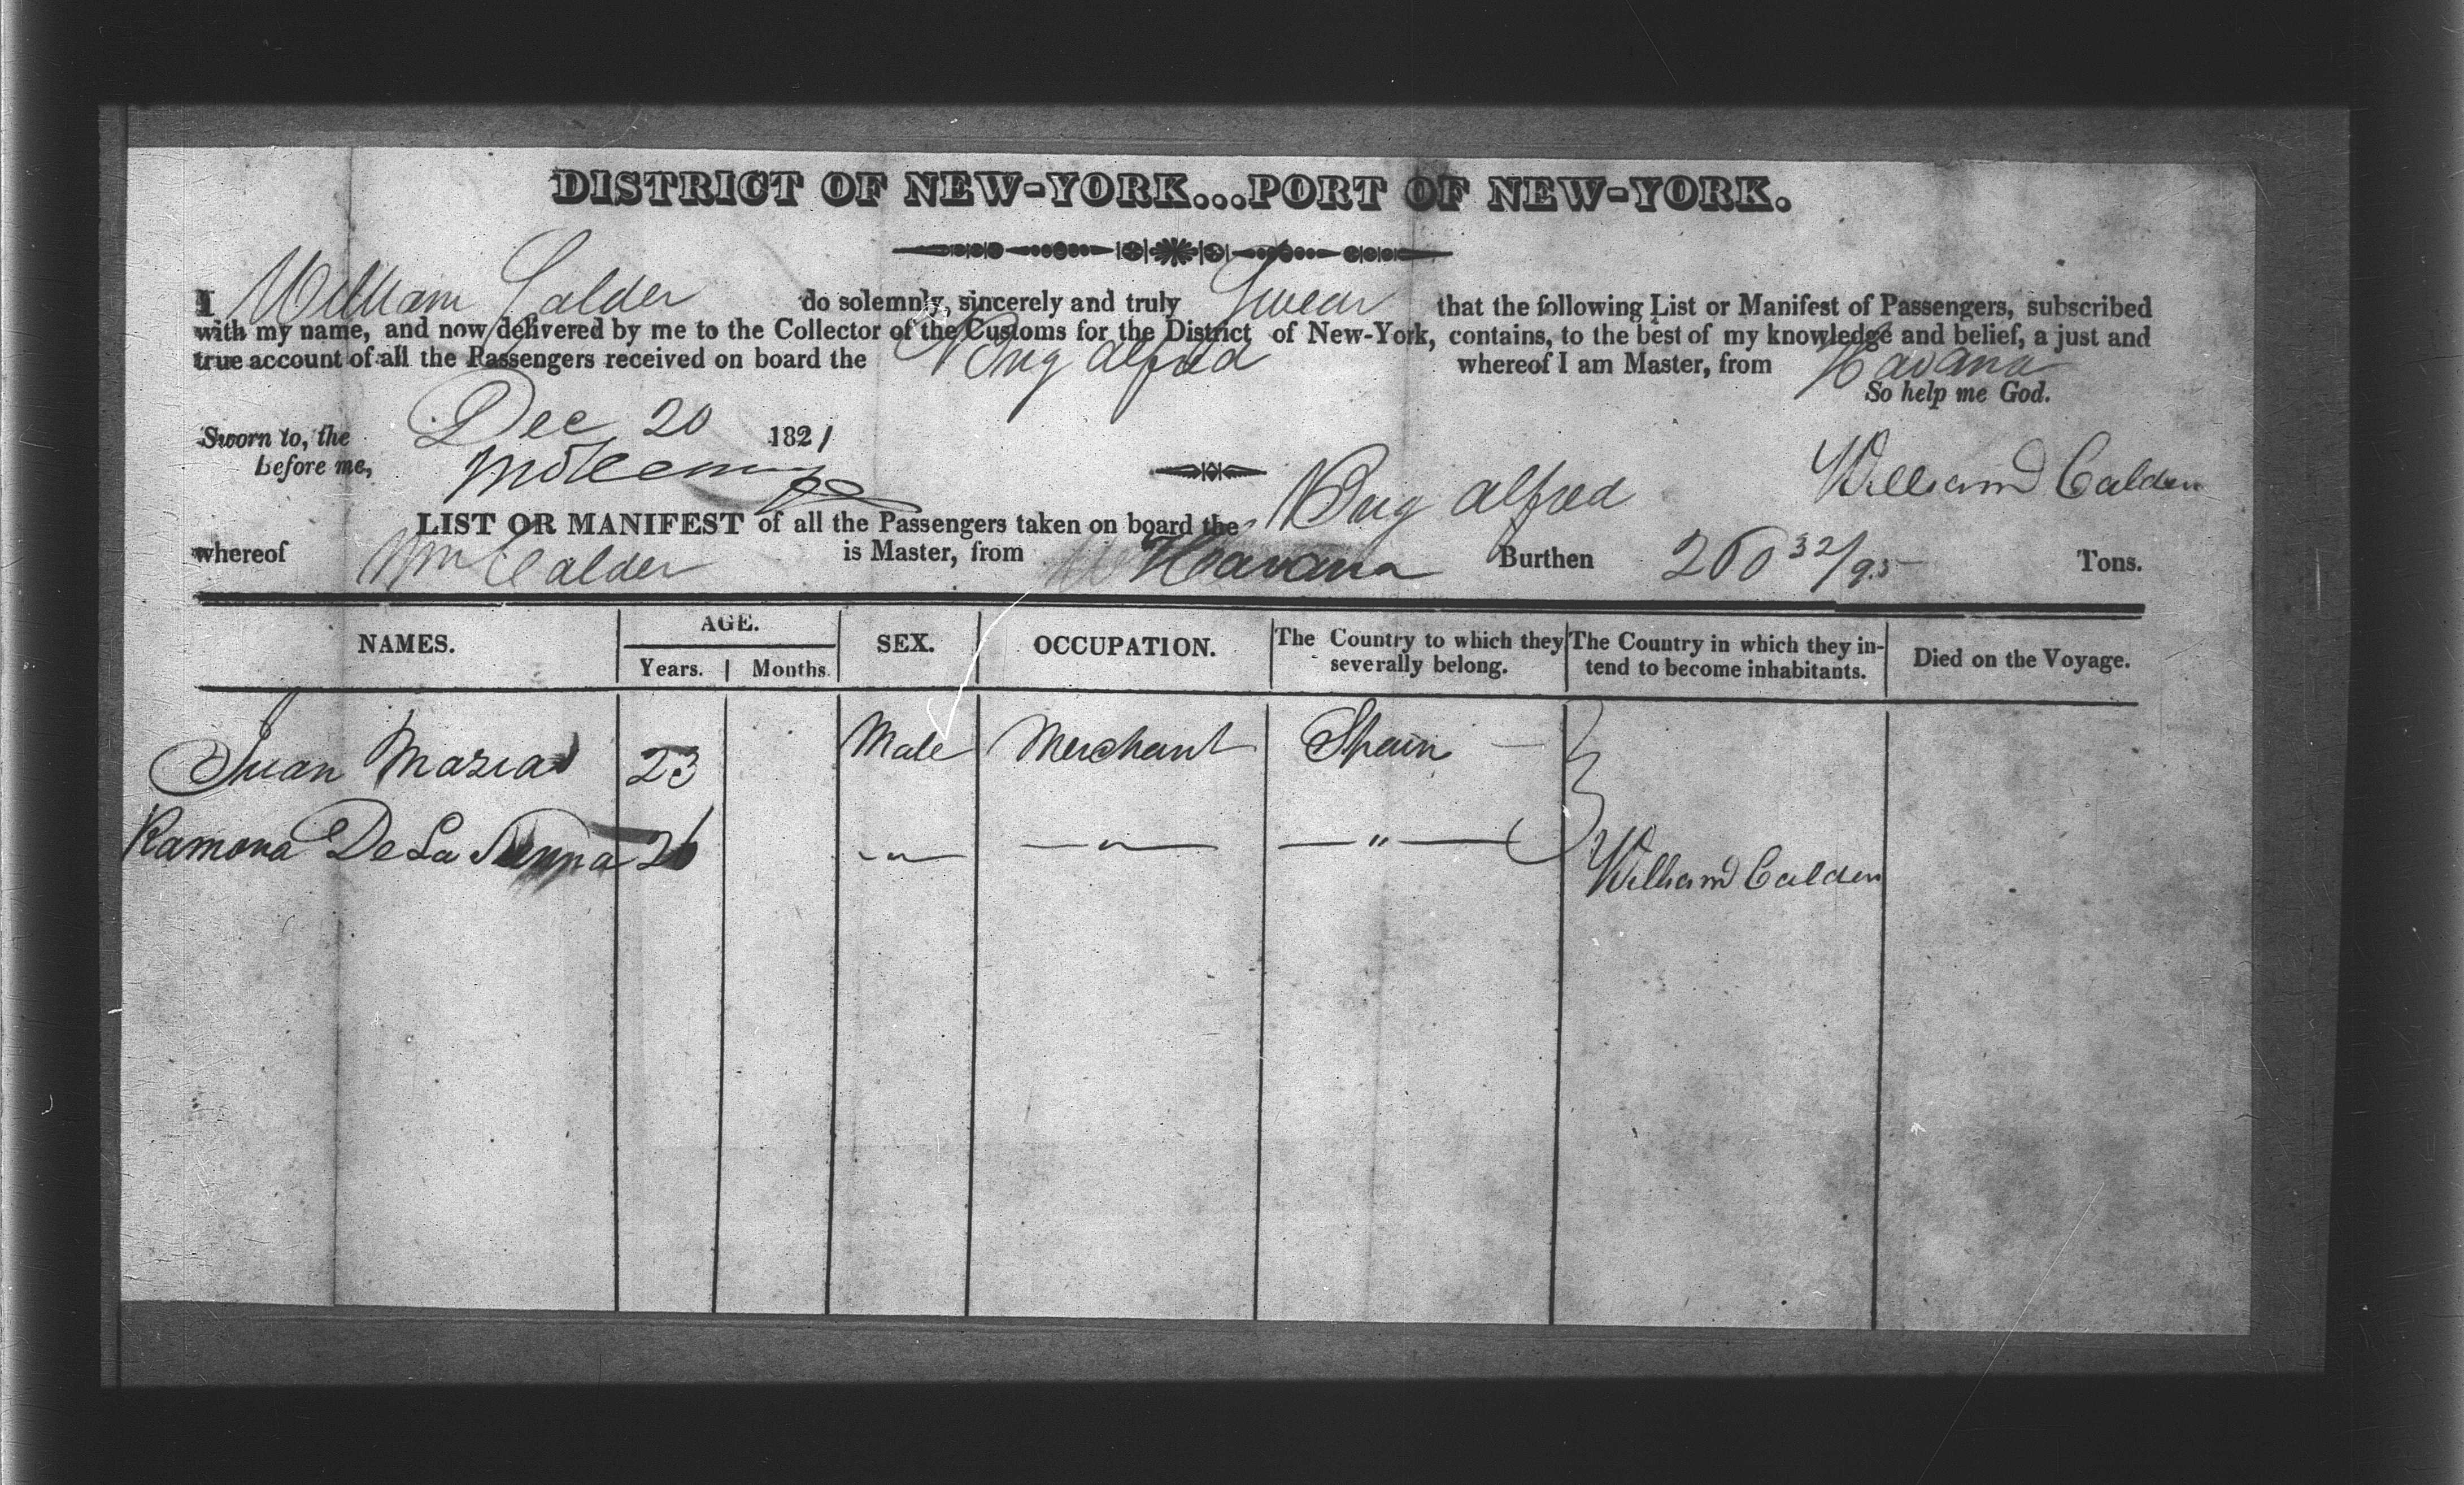 DISTRICT OF NEW-YORK...PORT OF NEW-YORK.
I William Calder do solemnly, sincerely and truly Swear that the following List or Manifest of Passengers, subscribed
with my name, and now delivered by me to the Collector of the Customs for the District of New-York, contains, to the best of my knowledge and belief, a just and
true account of all the Passengers received on board the Brig Alfred whereof I am Master, from Havana
So help me God.
Sworn to, the Dec 20 1821
before me,
William Calder
LIST OR MANIFEST of all the Passengers taken on board the Brig Alfred
whereof Wm Calder is Master, from Havana Burthen 200 32/95 Tons.
NAMES. AGE. SEX. OCCUPATION. The Country to which they severally belong. The Country in which they intend to become inhabitants. Died on the Voyage.
Years. Months.
Juan Marias 23 Male Merchant Spain
Ramona De La 26 " " "
William Calder